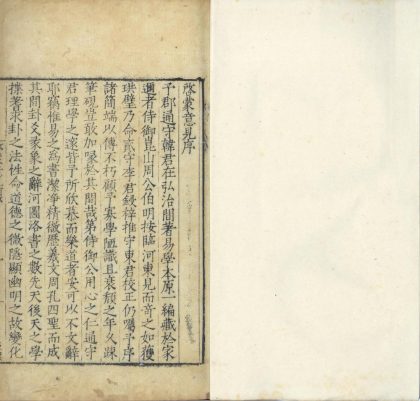 啓蒙意見序
予郡通守韓君在弘治間著易學本原一編藏於家
邇者侍御崑山周公伯明按臨河東見而奇之如獲
珙璧乃命貳守李君鋟梓推守東君校正仍屬予序
諸簡端以傳不朽顧予寡學陋識且衰頹之年久踈
筆硯豈敢加喙於其間哉第侍御公用心之仁通守
君理學之邃皆予所欣慕而樂道者安可以不文辭
耶竊惟易之為書潔淨精微歷羲文周孔四聖而成
其間卦爻彖象之辭河圖洛書之數先天後天之學
揲蓍求卦之法性命道德之微隱顯幽明之故變化